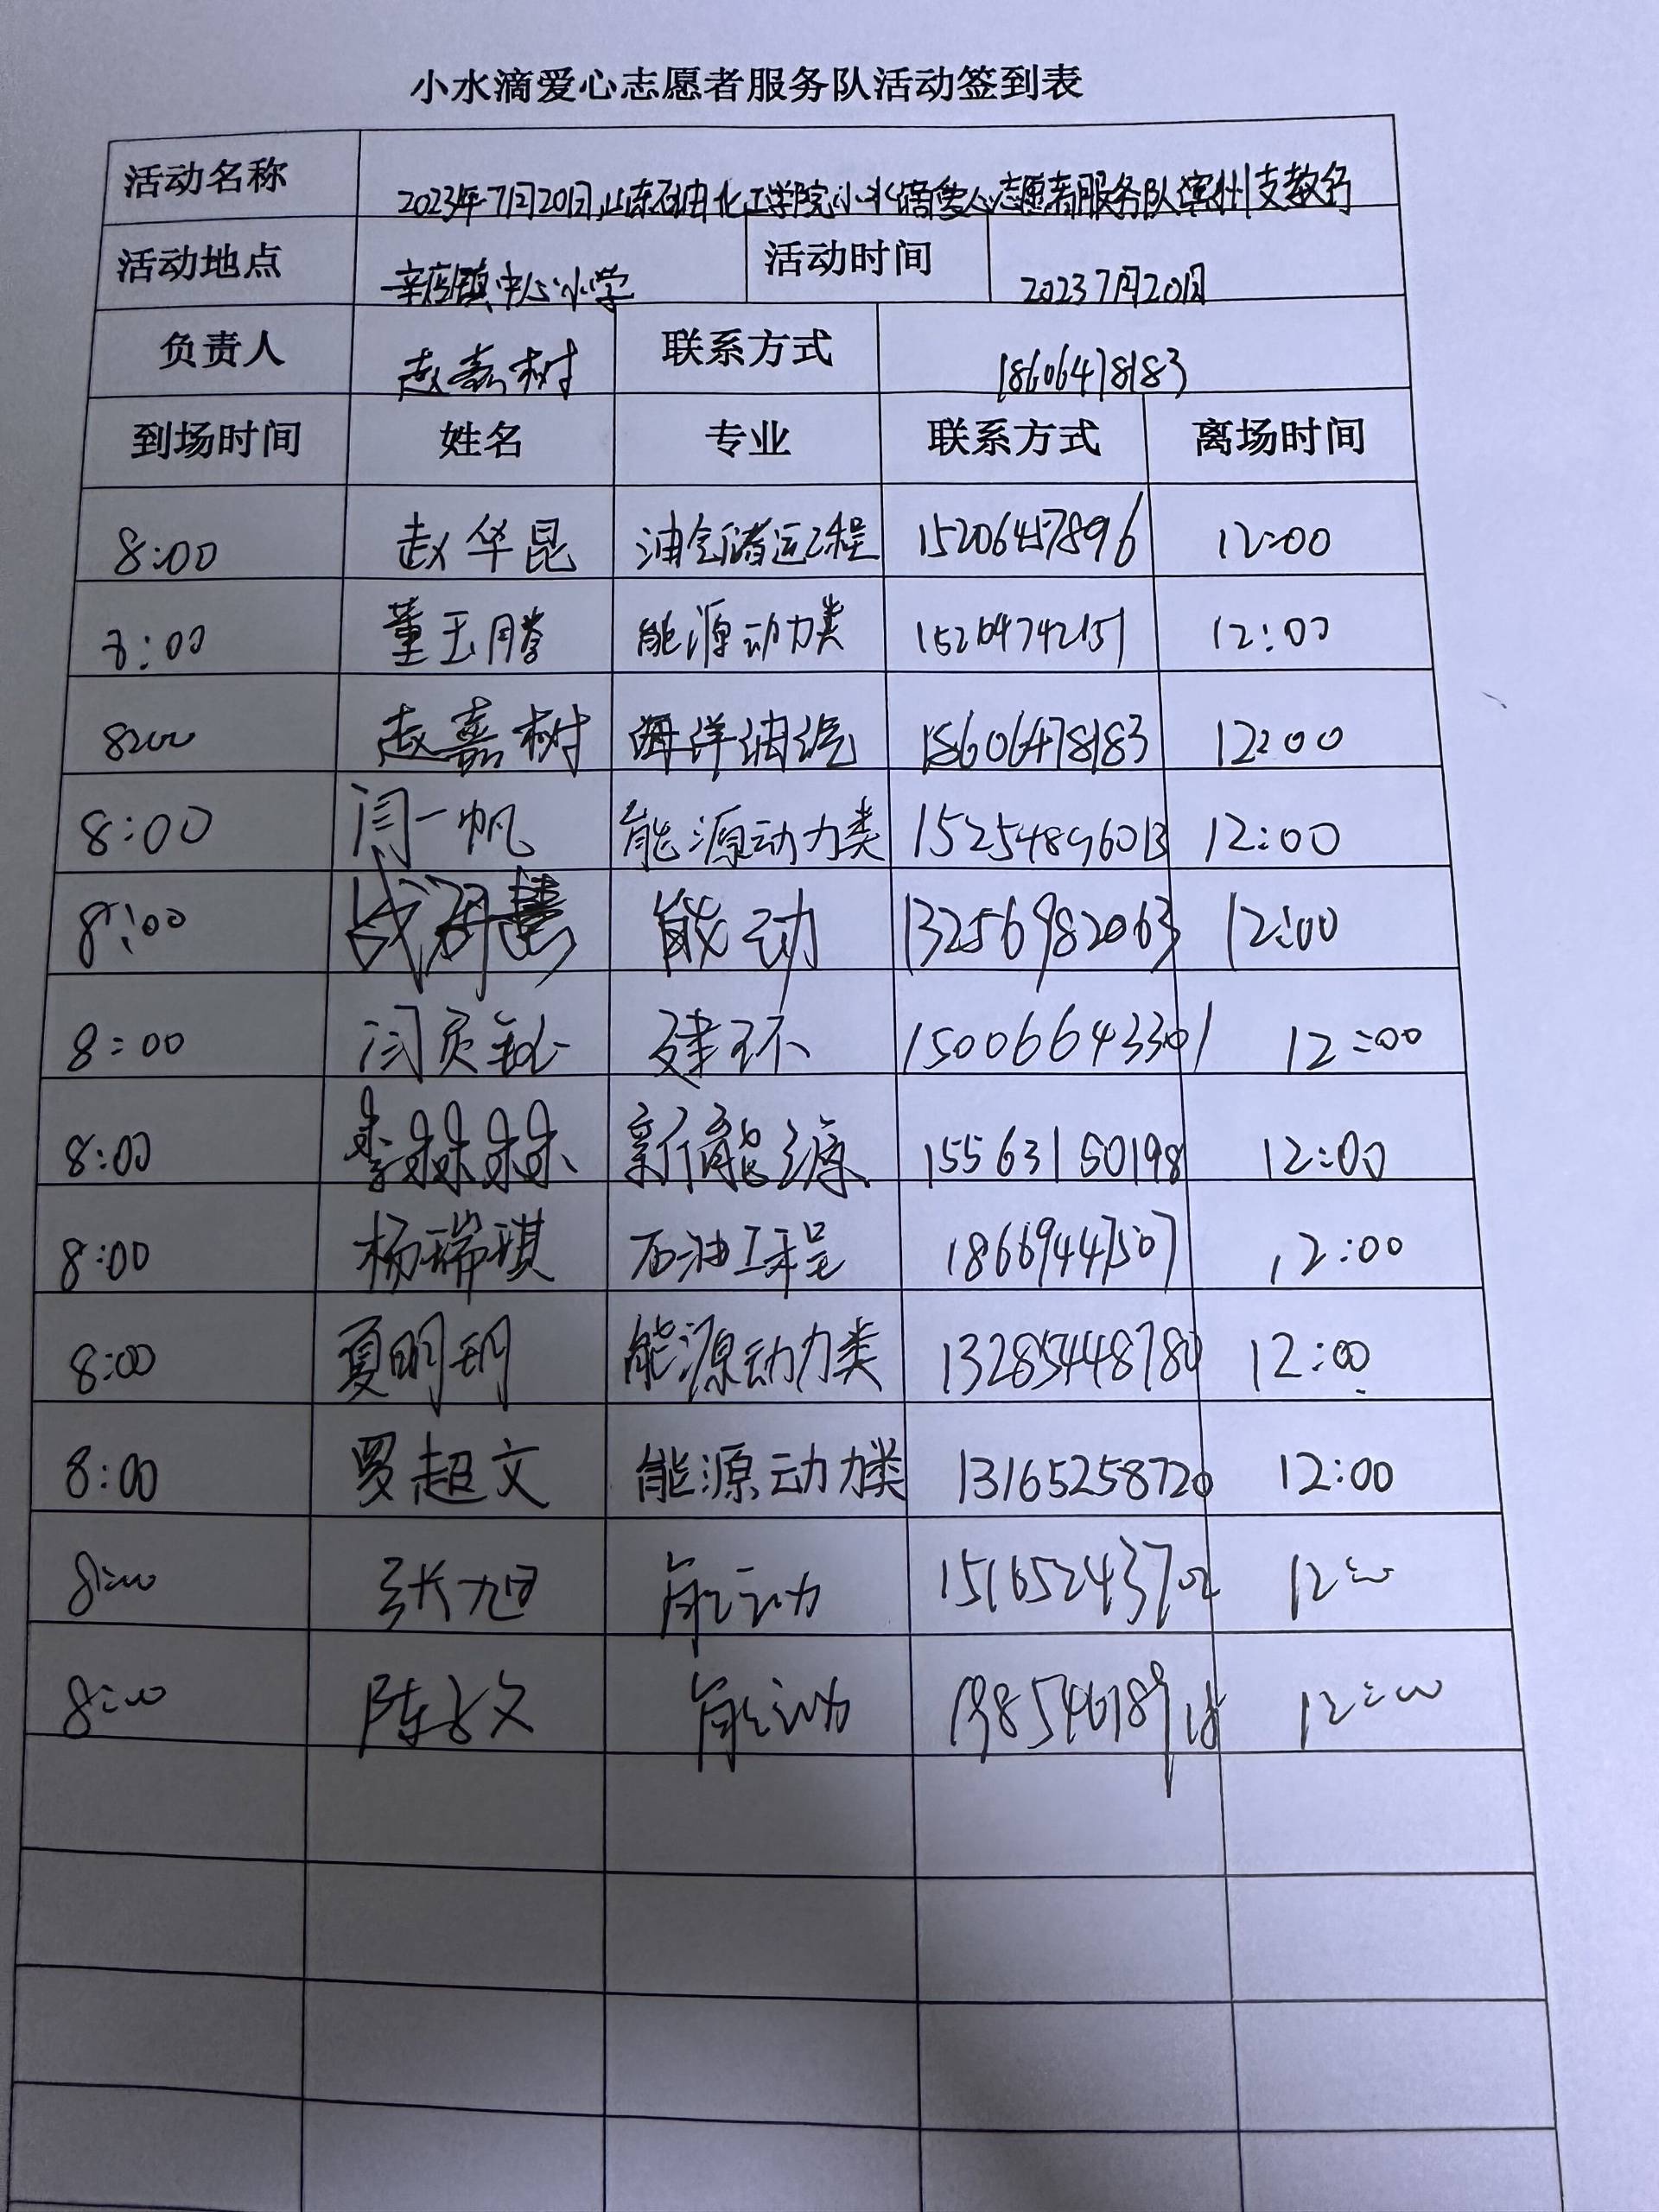 小水滴爱心志愿者服务队活动签到表
活动名称 2023年7月20日山东石油化工学院小水滴爱心志愿者服务队滨州支教行
活动地点 辛店镇中心小学 活动时间 2023 7月20日
负责人 赵嘉树 联系方式 18606478183
到场时间 姓名 专业 联系方式 离场时间
8:00 赵华昆 油气储运工程 15206457896 12:00
8:00 董玉腾 能源动力类 15264742151 12:00
8:00 赵嘉树 海洋油气 18606478183 12:00
8:00 闫一帆 能源动力类 15254896013 12:00
8:00 战 慧 能动 13256982063 12:00
8:00 闫 建环 15006643301 12:00
8:00 李 新能源 15563150198 12:00
8:00 杨瑞琪 石油工程 18669447507 12:00
8:00 夏明玥 能源动力类 13285448780 12:00
8:00 罗超文 能源动力类 13165258720 12:00
8:00 张旭 能动 15165243702 12:00
8:00 陈 文 能动 12:00